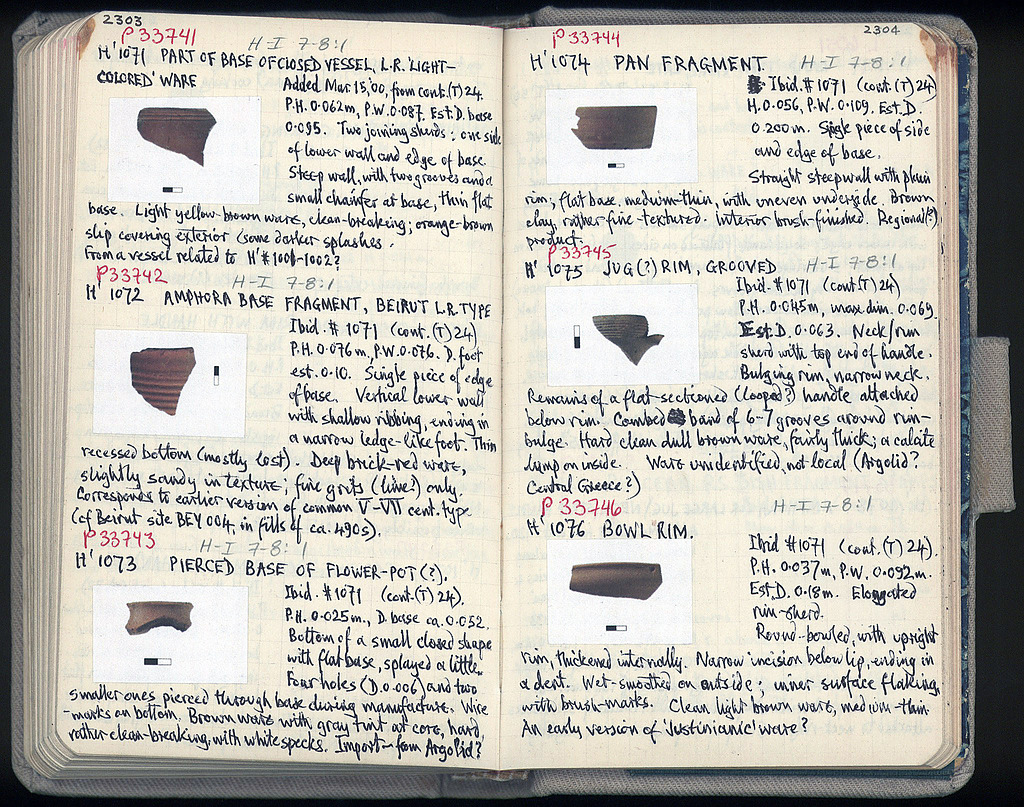 2303
P33741
H-I 7-8:1
H'1071 PART OF BASE OF CLOSED VESSEL, L.R. 'LIGHT-
COLORED' WARE
Added Mar 15,'00, from cont.(T) 24.
P.H. 0.062m, P.W. 0.087. Est. D. base
0.095. Two joining sherds: one side
of lower wall and edge of base.
Steep wall, with two grooves and a
small chamfer at base, thin flat
base. Light yellow-brown ware, clean-breaking; orange-brown
slip covering exterior (some darker splashes.
From a vessel related to H'#1001-1002?
P33742
H-I 7-8:1
H'1072 AMPHORA BASE FRAGMENT, BEIRUT L.R. TYPE
Ibid. #1071 (cont.(T) 24)
P.H. 0.076m, P.W. 0.076. D. foot
est. 0.10. Single piece of edge
of base. Vertical lower wall
with shallow ribbing, ending in
a narrow ledge-like foot. Thin
recessed bottom (mostly lost). Deep brick-red ware,
slightly sandy in texture; fine grits (lime?) only.
Corresponds to earlier version of common V-VII cent. type
(cf Beirut site BEY 004, in fills of ca. 490s).
P33743
H-I 7-8:1
H'1073 PIERCED BASE OF FLOWER-POT(?).
Ibid. #1071 (cont.(T) 24).
P.H. 0.025m, D. base ca. 0.052.
Bottom of a small closed shape
with flat base, splayed a little.
Four holes (D. 0.006) and two
smaller ones pierced through base during manufacture. Wire
-marks on bottom. Brown ware with gray tint at core, hard,
rather clean-breaking, with white specks. Import - from Argolid?
2304
P33744
H'1074 PAN FRAGMENT H-I 7-8:1
Ibid. #1071 (cont.(T) 24)
H. 0.056, P.W. 0.109. Est. D.
0.200m. Single piece of side
and edge of base.
Straight steep wall with plain
rim; flat base, medium-thin, with uneven underside. Brown
clay, rather fine-textured. Interior brush-finished. Regional(?)
product.
P33745
H'1075 JUG(?) RIM, GROOVED H-I 7-8:1
Ibid. #1071 (cont.(T) 24)
P.H. 0.045m, max dim. 0.069.
Est. D. 0.063. Neck/rim
sherd with top end of handle.
Bulging rim, narrow neck.
Remains of a flat-sectioned (looped?) handle attached
below rim. Combed band of 6-7 grooves around rim-
bulge. Hard clean dull brown ware, fairly thick; a calcite
lump on inside. Ware unidentified, not local (Argolid?
Central Greece?)
P33746
H-I 7-8:1
H'1076 BOWL RIM.
Ibid #1071 (cont.(T) 24).
P.H. 0.037m, P.W. 0.092m.
Est. D. 0.18m. Elongated
rim-sherd.
Round-bowled, with upright
rim, thickened internally. Narrow incision below lip, ending in
a dent. Wet-smoothed on outside; inner surface flaking,
with brush-marks. Clean light brown ware, medium-thin.
An early version of 'Justinianic' ware?